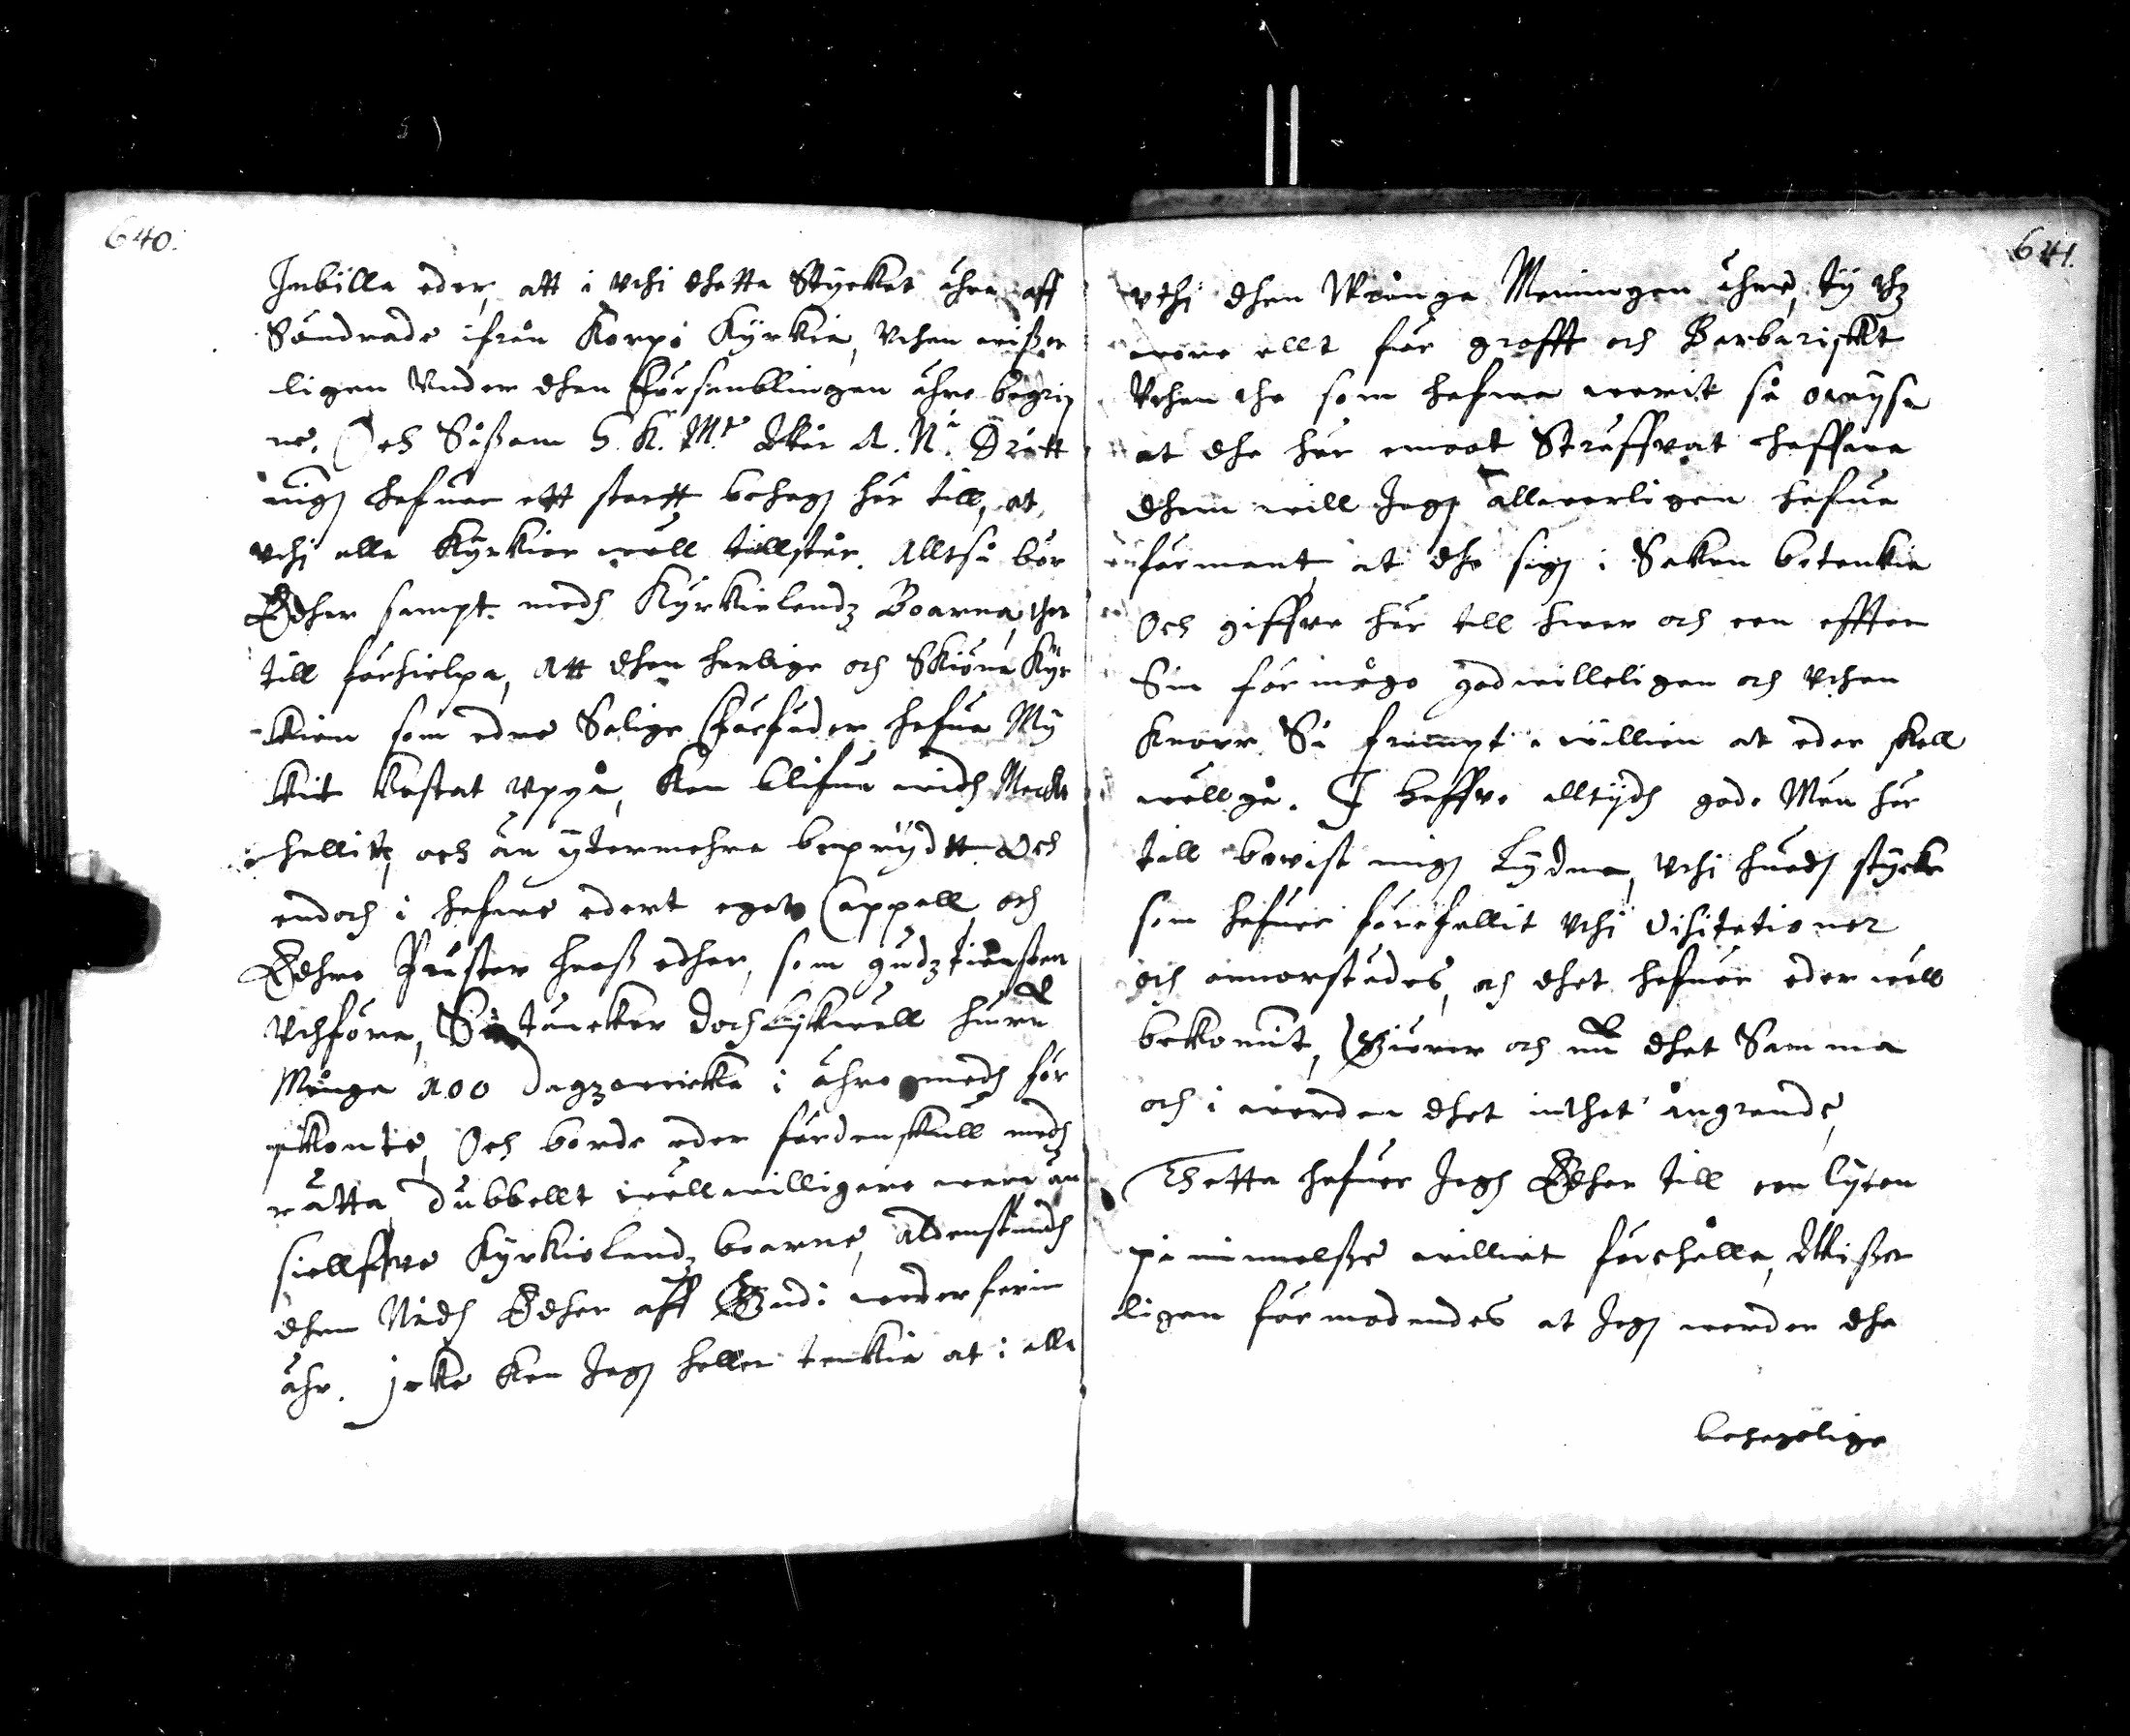 640.
Inbilla eder, att i uthi thetta Stycket ähre aff
Söndrade ifrån Korpo Kyrkia, Uthan wisser
ligen Under dhen Församblingen ähre begrip
ne. Och Såsom H. K. Mt Wår A. N. Drott
nigh hafuer ett stortt behagh här till, at
uthi alla Kyrkior wäll tillstår. Alltså bör
Edher sampt medh Kyrkielandz Boarna, ther
till förhielpa, Att dhen herlige och Skiöna Kyr
kian som edre Salige Förfäder hafua My
kit kostat uppå, kan blifua widh Macht
hållitt, och än ytermehra bepryditt. Och
endoch i hafue edert eget Cappell och
Edhre Präster hoos edher, som gudztiensten
Uthföra, Så täncker doch lykwäll huru
Månge 100 Dagzwercke i ähre medh för
skonte, Och borde eder fördenskull medh
rätta dubbellt wällwilligare wara än
siellfve Kyrkielandz boarne, aldenstundh
dhen Nådh Edher aff Gudi wederfarin
ähr. Icke kan Jagh heller tenkia at i alla
641.
uthi dhen Wrånga Meningen ähre, ty thz
wore allt för grofft och Barbariskt
Uthan the som hafua warit så owysa
at dhe här emoot Sträffvat haffua
dhem will Jagh allwarligen hafua
förmant, at dhe sigh i Saken betenkia
Och giffva här till hwar och een effter
Sin förmågo godwilleligen och uthan
knorr. Så frampt i willien at eder skall
wäll gå. I haffve alltydh gode Män här
till bewist migh Lydna, uthi huadh stycke
som hafuer förefallit uthi Visitationer
och annorstädes, och dhet hafuer eder wäll
bekommit, Giörer och nu dhet Samma
och i warden dhet inthet ångrande,
Thetta hafuer Jagh Edher till een lyten
påminnelsse williat förehålla, Wisser
ligen förmodendes at Jagh warder dhe
behagelige